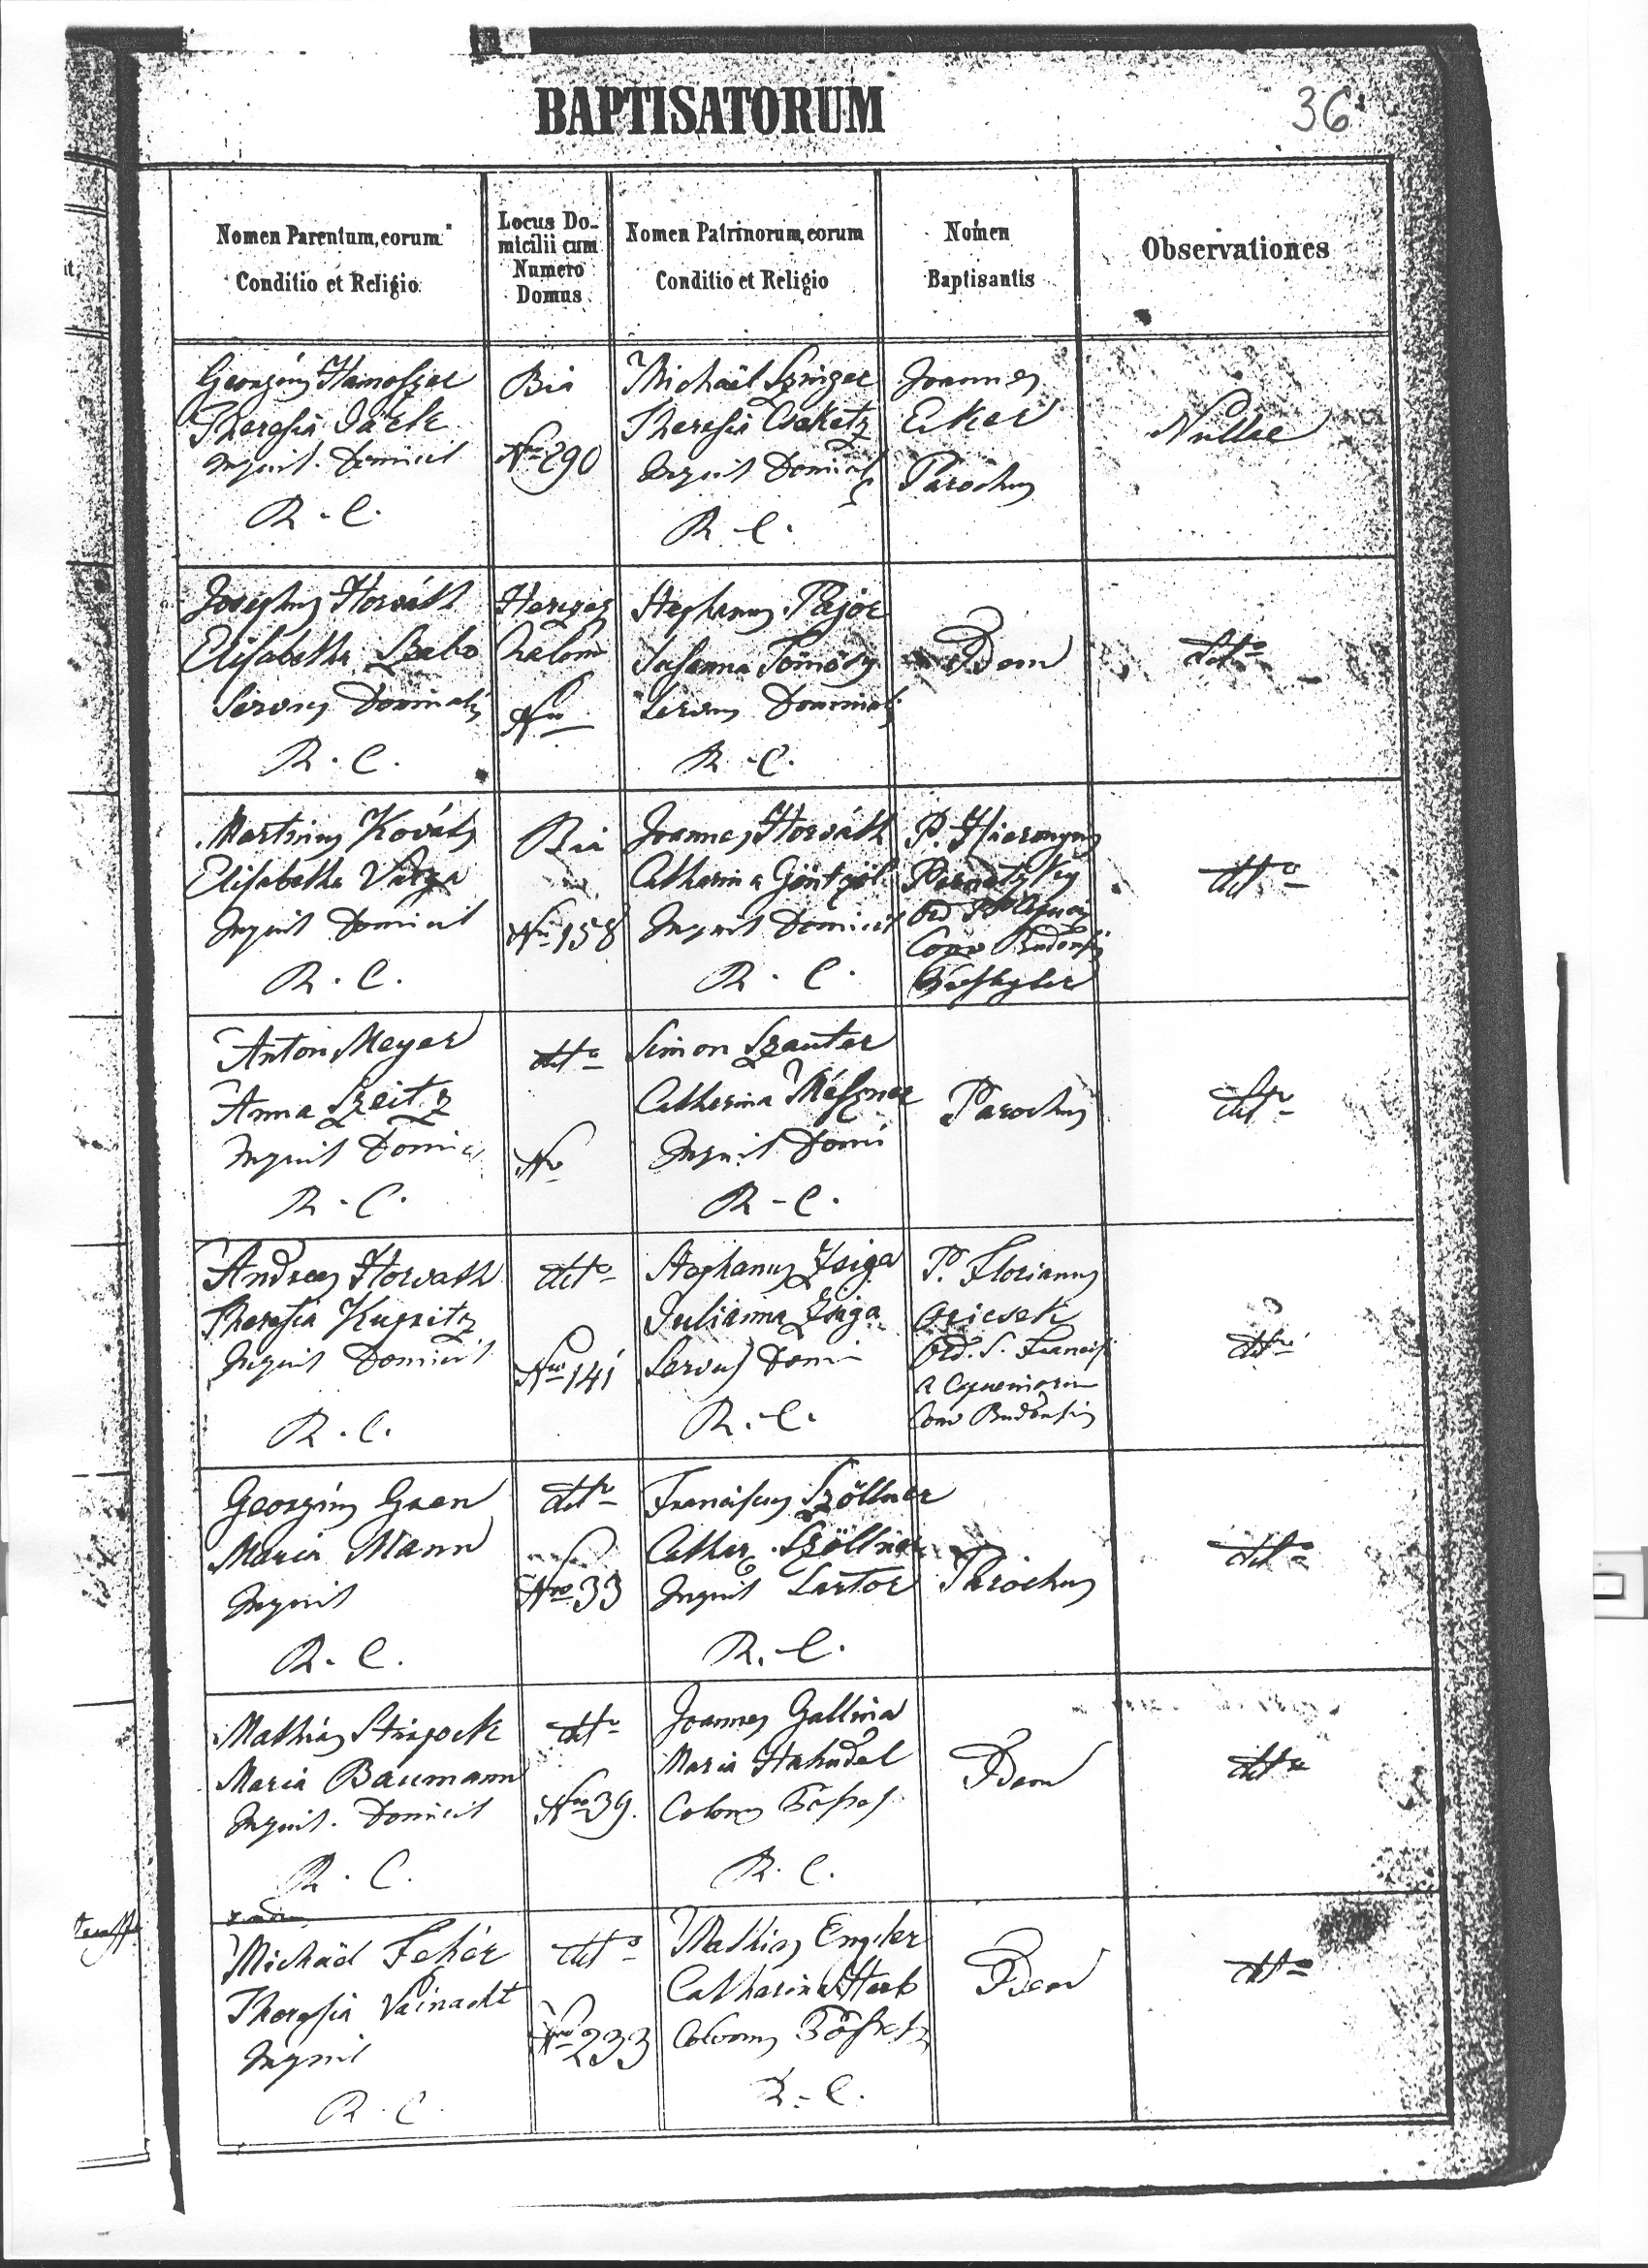 BAPTISATORUM
36
Nomen Parentum, eorum
Conditio et Religio
Locus Do-
micilii cum
Numero
Domus
Nomen Patrinorum, eorum
Conditio et Religio
Nomen
Baptisantis
Observationes
Theresia
Inquil. Domicil
R. C.
Bia
Nro 290
Michaël
Theresia
Inquil Domicil
R. C.
Joannes
Eker
Parochus
Nullae
Josephus Horváth
Elisabetha Szabo
Servus Dominalis
R. C.
Herczeg
halom
Nro
Stephanus Pajor
Susanna Tömösy
Servus Dominalis
R. C.
Idem
ditto
Martinus Kováts
Elisabetha Varga
Inquil Domicil
R. C.
Bia
Nro 158
Joannes Horváth
Catharina
Inquil Domicil
R. C.
P. Hieronymus
Conv Budensis
Anton Meyer
Anna Szeitz
Inquil Domicil
R. C.
ditto
Nro
Simon Szauter
Catharina Mészner
Inquil Domi
R. C.
Parochus
ditto
Andreas Horvath
Theresia Kupritz
Inquil Domicil
R. C.
ditto
Nro 141
Stephanus Zsiga
Julianna Zsiga
Servus Domi
R. C.
P. Florianus
Ord. S. Francisci
Conv Budensis
ditto
Georgius Gren
Maria Mann
Inquil
R. C.
ditto
Nro 33
Franciscus Szöllner
Cathar. Szöllner
Inquil Sartor
R. C.
Parochus
ditto
Mathias
Maria Baumann
Inquil. Domicil
R. C.
ditto
Nro 39.
Joannes Gallina
Maria
Colonus
R. C.
Idem
ditto
Michäel Fehér
Theresia Vainacht
Inquil
R. C.
ditto
Nro 233
Mathias Engler
Catharina
Colonus
R. C.
Idem
ditto